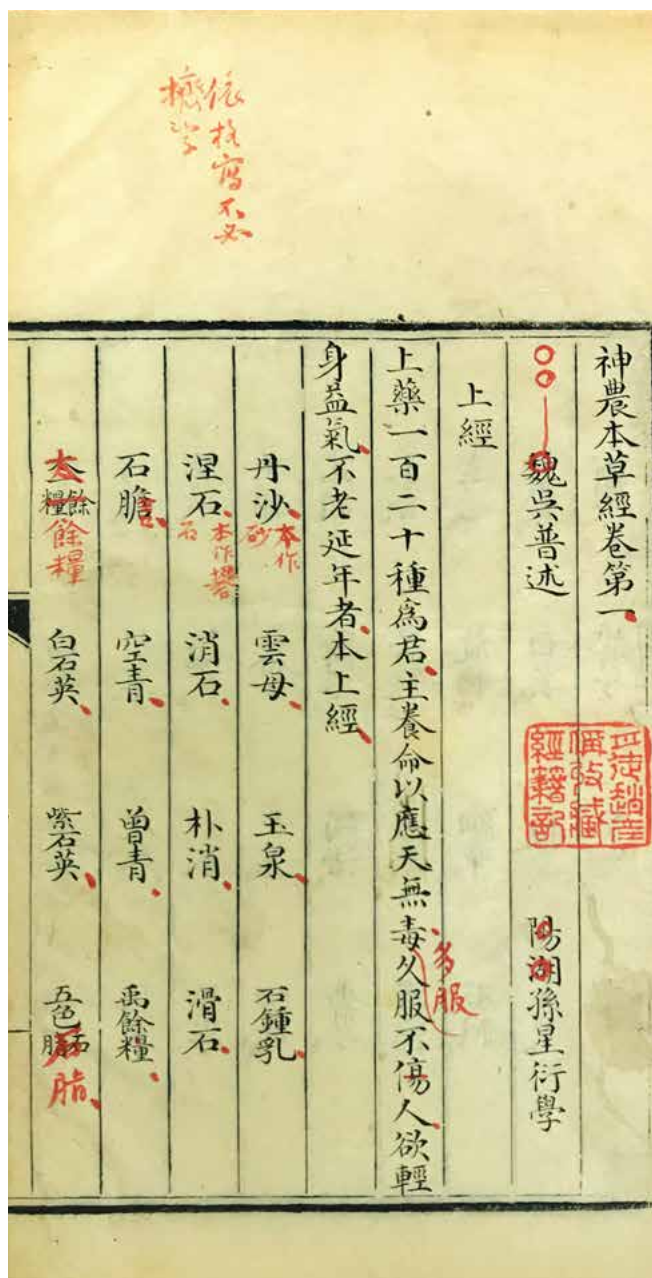 依格寫不必
擠字
神農本草經卷第一
魏吳普述 陽湖孫星衍學
丹徒趙彥
偁收藏
經籍記
上經
上藥一百二十種爲君主養命以應天無毒久服不傷人欲輕
多服
身益氣不老延年者本上經
丹沙 本作砂 雲母 玉泉 石鍾乳
涅石 本作礬石 消石 朴消 滑石
石膽 空青 曾青 禹餘糧
太一餘糧 餘糧 白石英 紫石英 五色石脂 石脂